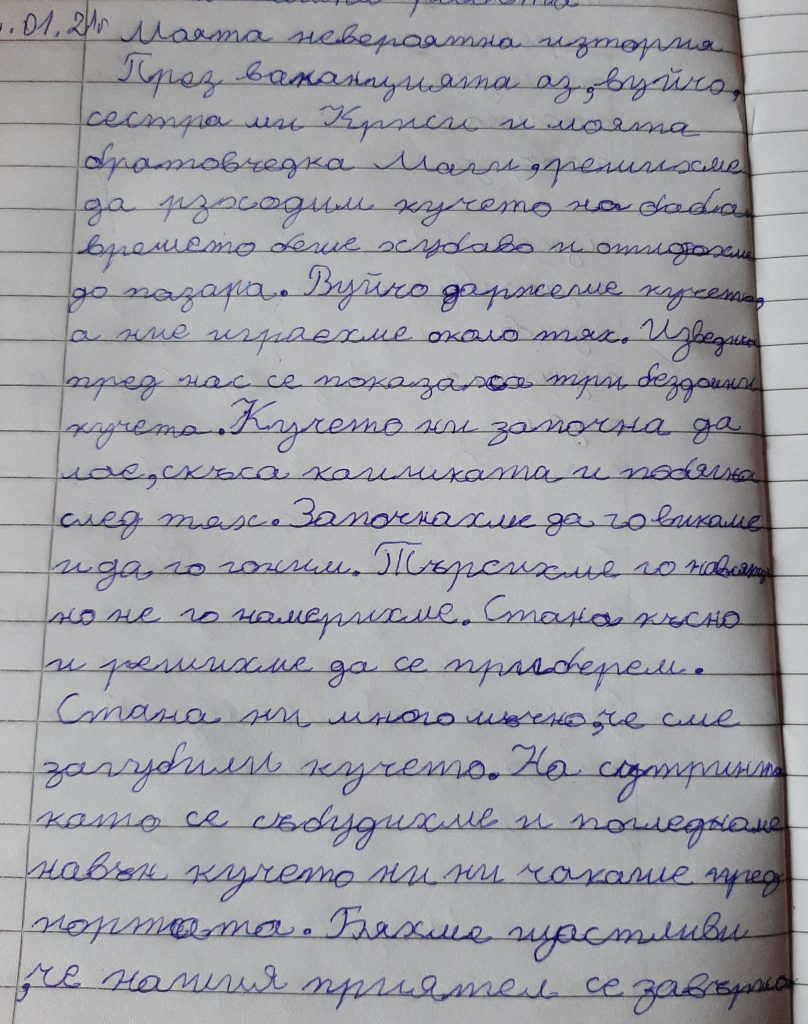 .01.21г Моята невероятна изтория
През ваканцията аз, вуйчо,
сестра ми Криси и моята
братовчедка Маги, решихме
да рзходим кучето на баба
времето беше хубаво и отидохме
до пазара. Вуйчо даржеше кучето,
а ние играехме около тях. Изведнъ
пред нас се показаха три бездомни
кучета. Кучето ни започна да
лае, скъса каишката и побягна
след тях. Започнахме да го викаме
и да го гоним. Търсихме го навсякъ
но не го намерихме. Стана късно
и решихме да се приберем.
Стана ни много мъчно, че сме
загубили кучето. На сутринта
като се събудихме и погледнаме
навън кучето ни ни чакаше пред
портата. Бяхме щастливи
, че нашия приятел се завърна